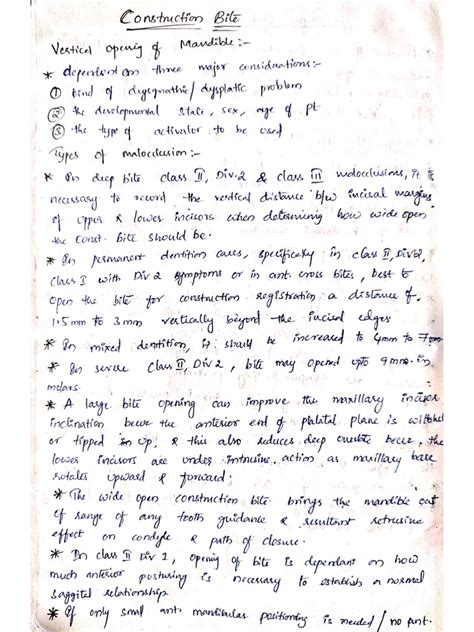 Construction Bite
Vertical opening of Mandible:-
* dependent on three major considerations:-
① kind of dysgnathic/dysplatic problem
② the developmental state, sex, age of pt
③ the type of activator to be used
Types of malocclusion:-
* In deep bite class II, Div.2 & class III malocclusions, it is
necessary to record the vertical distance b/w incisal margins
of upper & lower incisors when determining how wide open
the const. bite should be.
* In permanent dentition cases, specifically in class II, Div 2,
class I with Div 2 symptoms or in ant. cross bites, best to
open the bite for construction registration a distance of
1.5mm to 3mm vertically beyond the incisal edges
* In mixed dentition, it should be increased to 4mm to 7mm
* In severe class II, Div 2, bite may opened upto 9mm in
molars.
* A large bite opening can improve the maxillary incisor
inclination the anterior end of palatal plane is
or tipped in up, & this also reduces deep the
lower incisors are under intrusive action as maxillary base
rotates upward & forward.
* The wide open construction bite brings the mandible out
of range of any tooth guidance & resultant retrusive
effect on condyle & path of closure.
* In class II Div 1, opening of bite is dependant on how
much anterior posturing is necessary to establish a normal
saggital relationship
* If only small ant. mandibular positioning is needed / no